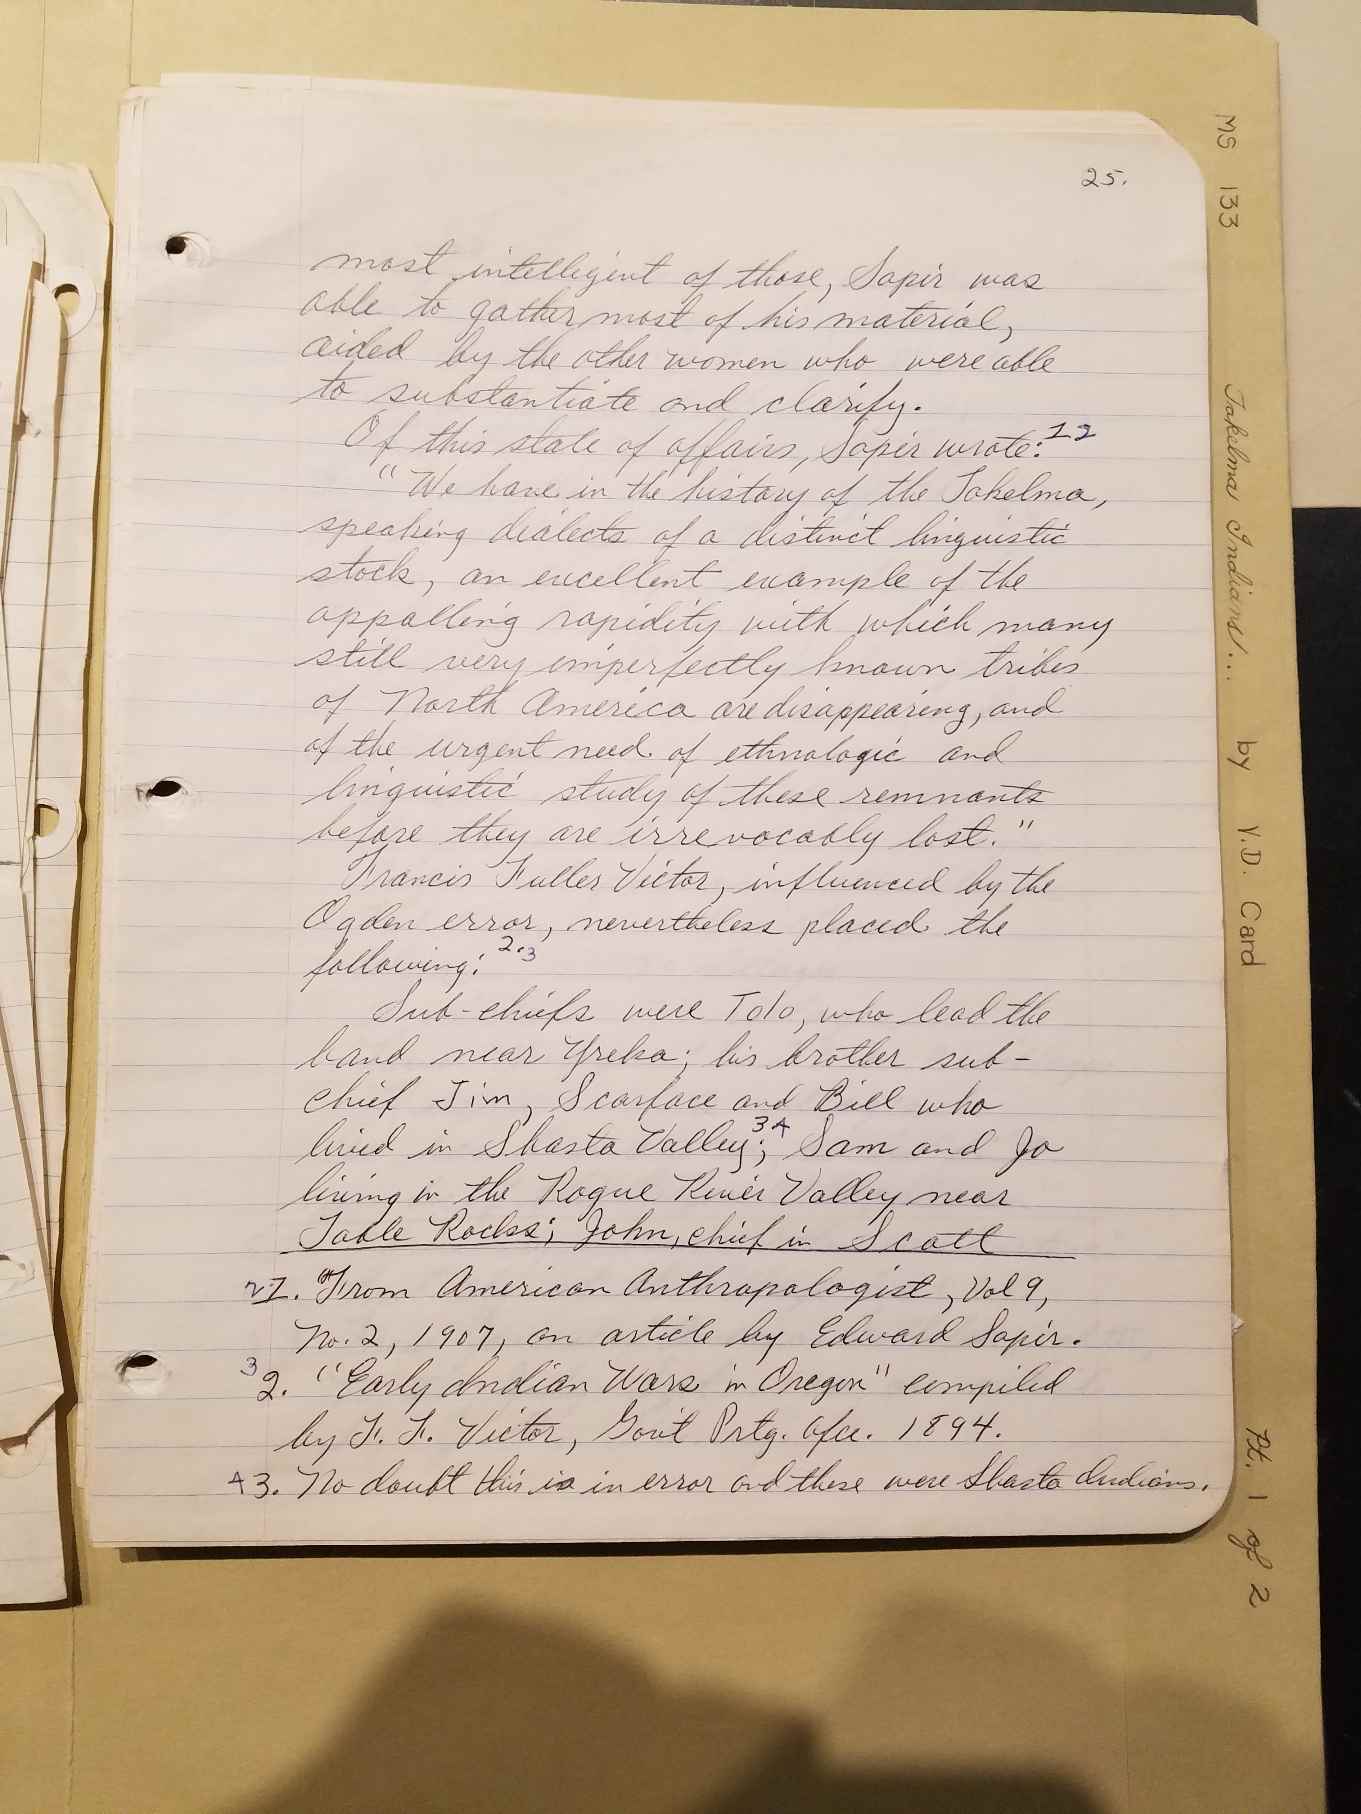 25.
most intelligent of those, Sapir was
able to gather most of his material,
aided by the other women who were able
to substantiate and clarify.
Of this state of affairs, Sapir wrote: 12
"We have in the history of the Takelma,
speaking dialects of a distinct linguistic
stock, an excellent example of the
appalling rapidity with which many
still very imperfectly known tribes
of North America are disappearing, and
of the urgent need of ethnologic and
linguistic study of these remnants
before they are irrevocably lost."
Francis Fuller Victor, influenced by the
Ogden error, nevertheless placed the
following: 2.3
Sub-chiefs were Tolo, who lead the
band near Yreka; his brother sub-
chief Jim, Scarface and Bill who
lived in Shasta Valley; 34 Sam and Jo
living in the Rogue River Valley near
Table Rocks; John, chief in Scott
21. "From American Anthropologist, Vol 9,
No. 2, 1907, an article by Edward Sapir.
3 2. "Early Indian Wars in Oregon" compiled
by F. F. Victor, Govt Prtg. Ofce. 1894.
4 3. No doubt this is in error and these were Shasta Indians.
MS 133 Takelma Indians... by V.D. Card Pt. 1 of 2